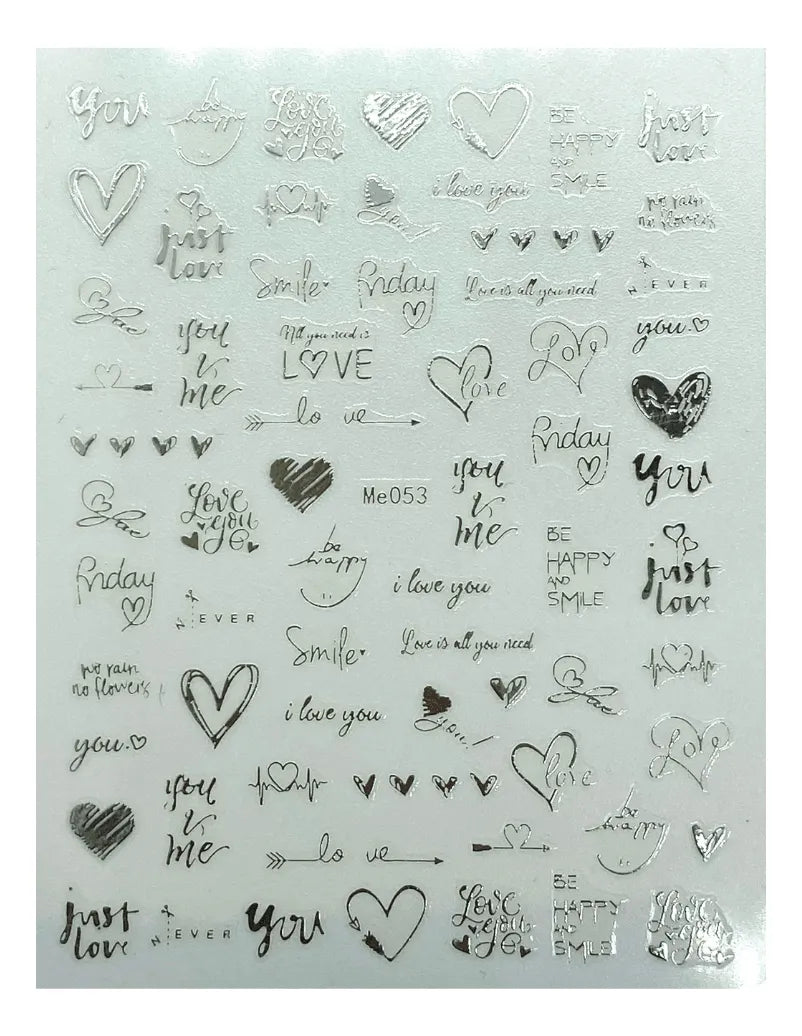 you
be
happy
Love
you
BE
HAPPY
AND
SMILE
just
love
just
love
you!
i love you
no rain
no flowers
Smile
Friday
Love is all you need
NEVER
you
&
me
All you need is
LOVE
love
Love
you.
lo ve
Friday
you
Love
you
Me053
you
&
me
be
happy
BE
HAPPY
AND
SMILE
just
love
Friday
NEVER
i love you
Smile
Love is all you need
no rain
no flowers
i love you
you!
you.
love
Love
you
&
me
be
happy
lo ve
just
love
NEVER
you
Love
you
BE
HAPPY
AND
SMILE
Love
you